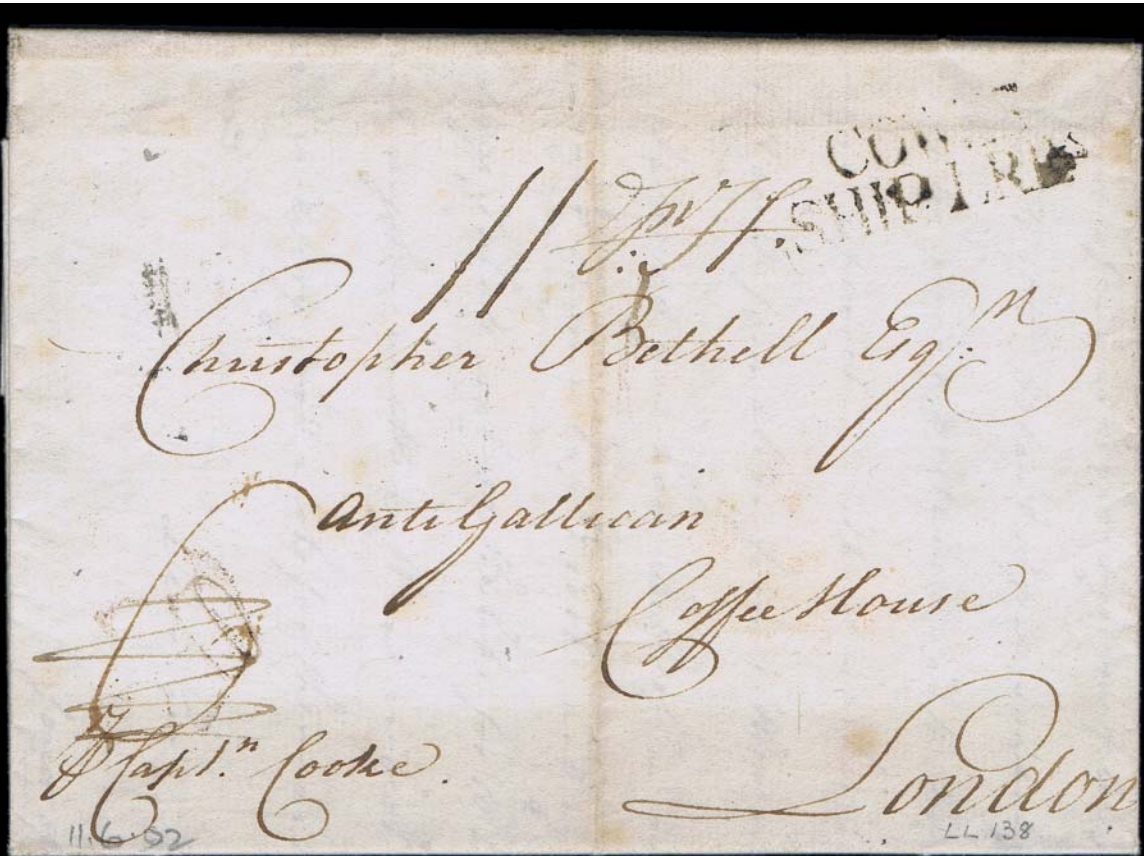 COW
SHIP LRE
11
Christopher Bethell Esqr.
Anti Gallican
Coffee House
6
Captn. Cooke.
London
11.6.02
LL 138